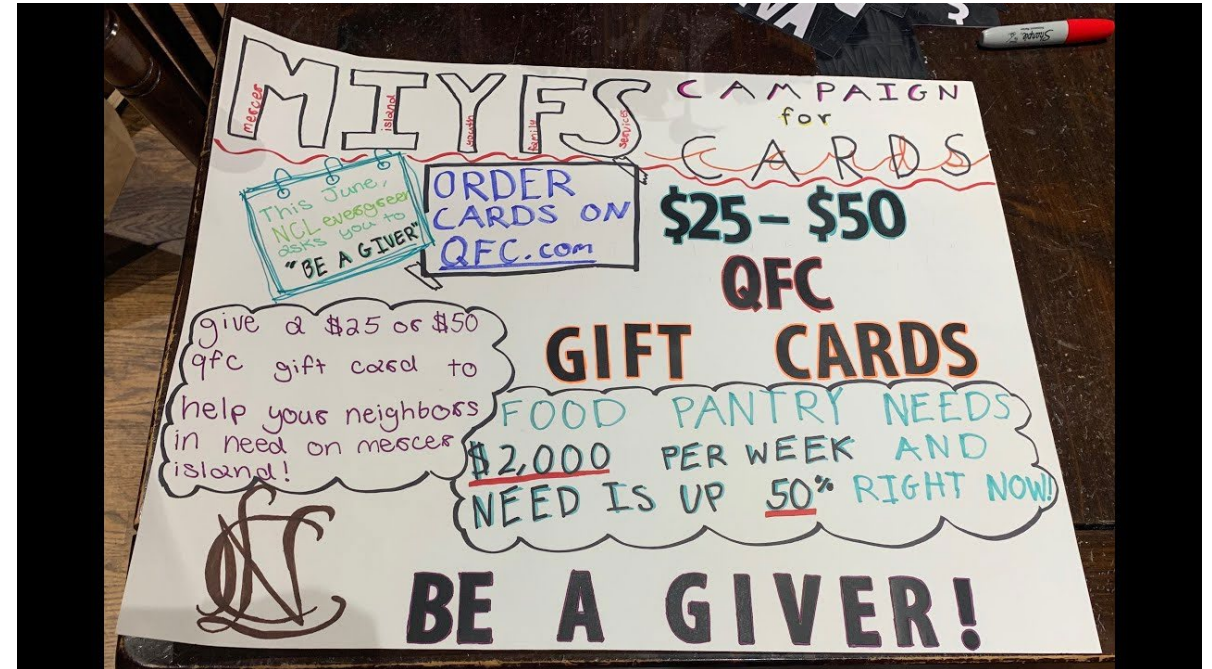 MIYFS
mercer
island
youth
family
services
CAMPAIGN
for
CARDS
This June,
NCL evergreen
asks you to
"BE A GIVER"
ORDER
CARDS ON
QFC.com
$25 – $50
QFC
GIFT CARDS
give a $25 or $50
qfc gift card to
help your neighbors
in need on mercer
island!
FOOD PANTRY NEEDS
$2,000 PER WEEK AND
NEED IS UP 50% RIGHT NOW!
NCL
BE A GIVER!
Sharpie